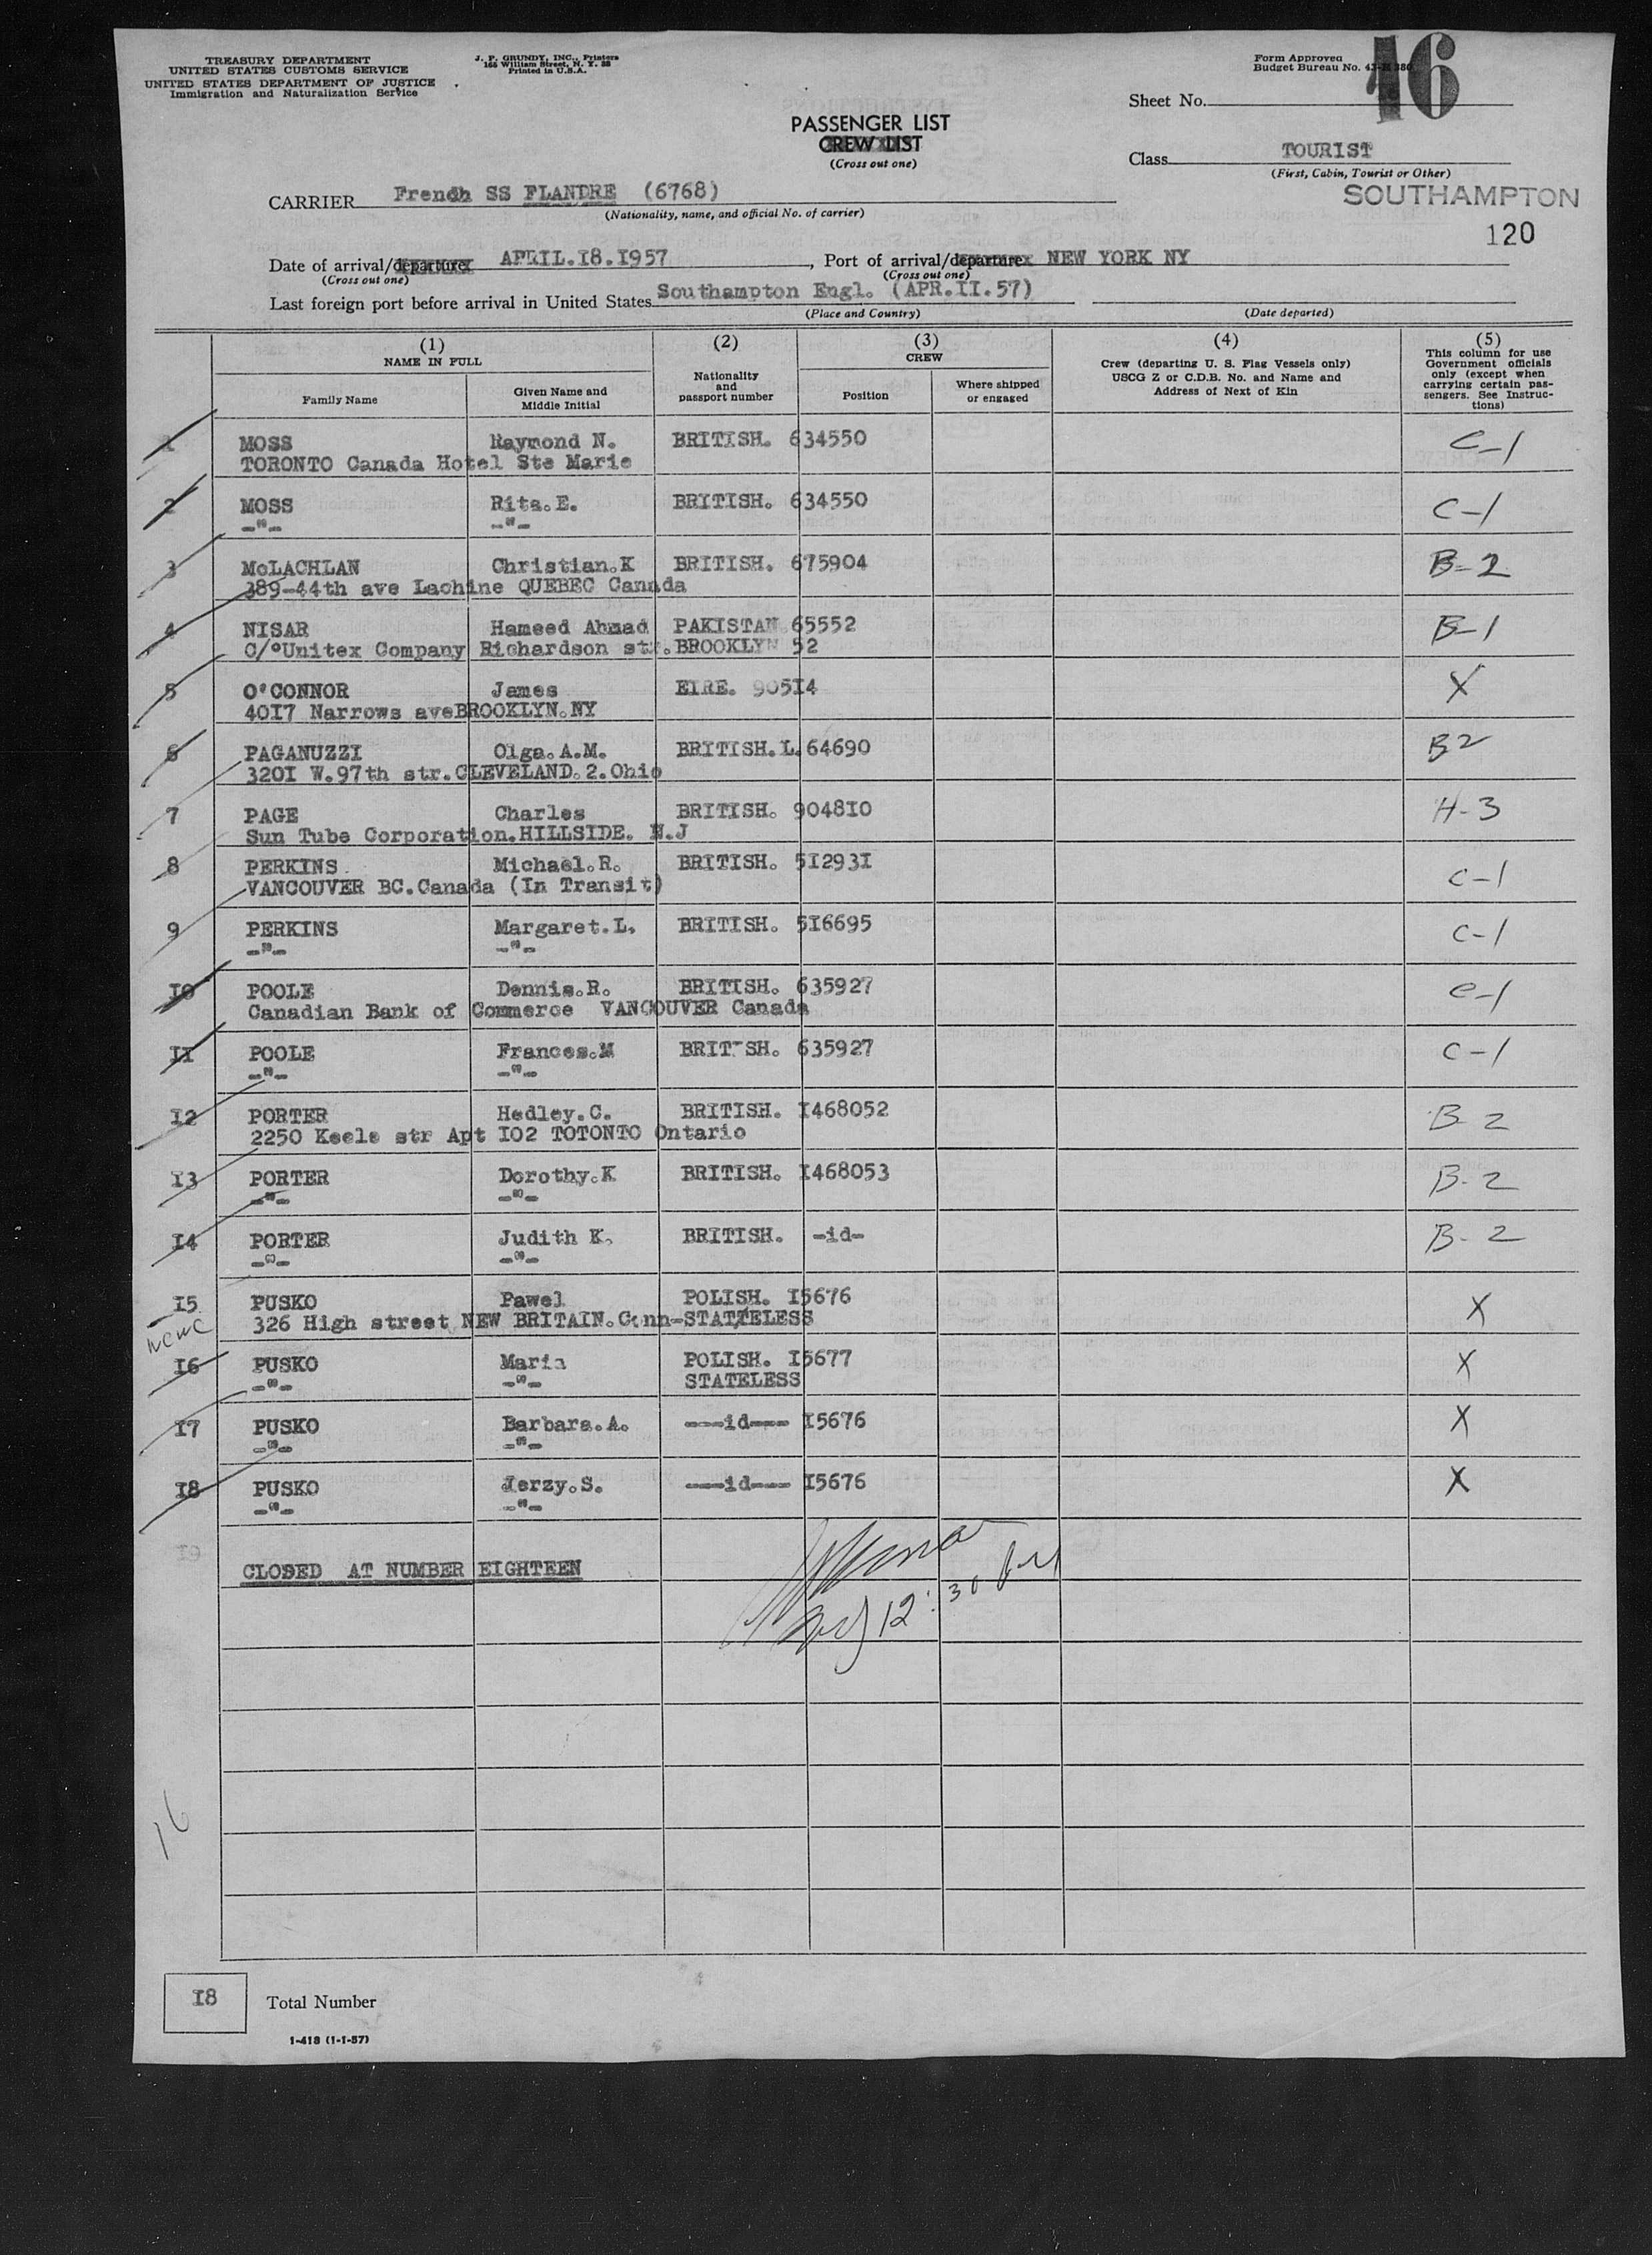 TREASURY DEPARTMENT
UNITED STATES CUSTOMS SERVICE
UNITED STATES DEPARTMENT OF JUSTICE
Immigration and Naturalization Service
J. F. GRUNDY, INC., Printers
166 William Street, N. Y. 38
Printed in U.S.A.
Form Approved
Budget Bureau No. 43-R 380
Sheet No. 46
PASSENGER LIST
CREW LIST
(Cross out one)
Class TOURIST
(First, Cabin, Tourist or Other)
SOUTHAMPTON
120
CARRIER French SS FLANDRE (6768)
(Nationality, name, and official No. of carrier)
Date of arrival/departure APRIL.I8.I957, Port of arrival/departure NEW YORK NY
(Cross out one) (Cross out one)
Last foreign port before arrival in United States Southampton Engl. (APR.II.57)
(Place and Country) (Date departed)
(1) NAME IN FULL
Family Name
Given Name and Middle Initial
(2)
Nationality and passport number
(3) CREW
Position
Where shipped or engaged
(4)
Crew (departing U. S. Flag Vessels only)
USCG Z or C.D.B. No. and Name and
Address of Next of Kin
(5)
This column for use
Government officials
only (except when
carrying certain pas-
sengers. See Instruc-
tions)
1 MOSS Raymond N. BRITISH. 634550 C-1
TORONTO Canada Hotel Ste Marie
2 MOSS Rita.E. BRITISH. 634550 C-1
-"- -"-
3 McLACHLAN Christian.K BRITISH. 675904 B-2
389-44th ave Lachine QUEBEC Canada
4 NISAR Hameed Ahmad PAKISTAN 65552 B-1
C/°Unitex Company Richardson str.BROOKLYN 52
5 O'CONNOR James EIRE. 905I4 X
40I7 Narrows aveBROOKLYN.NY
6 PAGANUZZI Olga.A.M. BRITISH.L.64690 B2
320I W.97th str.CLEVELAND.2.Ohio
7 PAGE Charles BRITISH. 9048I0 H-3
Sun Tube Corporation.HILLSIDE. N.J
8 PERKINS Michael.R. BRITISH. 5I293I C-1
VANCOUVER BC.Canada (In Transit)
9 PERKINS Margaret.L. BRITISH. 5I6695 C-1
-"- -"-
I0 POOLE Dennis.R. BRITISH. 635927 C-1
Canadian Bank of Commerce VANCOUVER Canada
II POOLE Frances.M BRIT-SH. 635927 C-1
-"- -"-
I2 PORTER Hedley.C. BRITISH. I468052 B-2
2250 Keele str Apt I02 TOTONTO Ontario
I3 PORTER Dorothy.K BRITISH. I468053 B-2
-"- -"-
I4 PORTER Judith K. BRITISH. -id- B-2
-"- -"-
I5 PUSKO Pawel POLISH. I5676 X
326 High street NEW BRITAIN.Conn-STATTELESS
I6 PUSKO Maria POLISH. I5677 X
-"- -"- STATELESS
I7 PUSKO Barbara.A. ---id--- I5676 X
-"- -"-
I8 PUSKO Jerzy.S. ---id--- I5676 X
-"- -"-
I9
CLOSED AT NUMBER EIGHTEEN
12:30
16
I8 Total Number
1-418 (1-1-57)